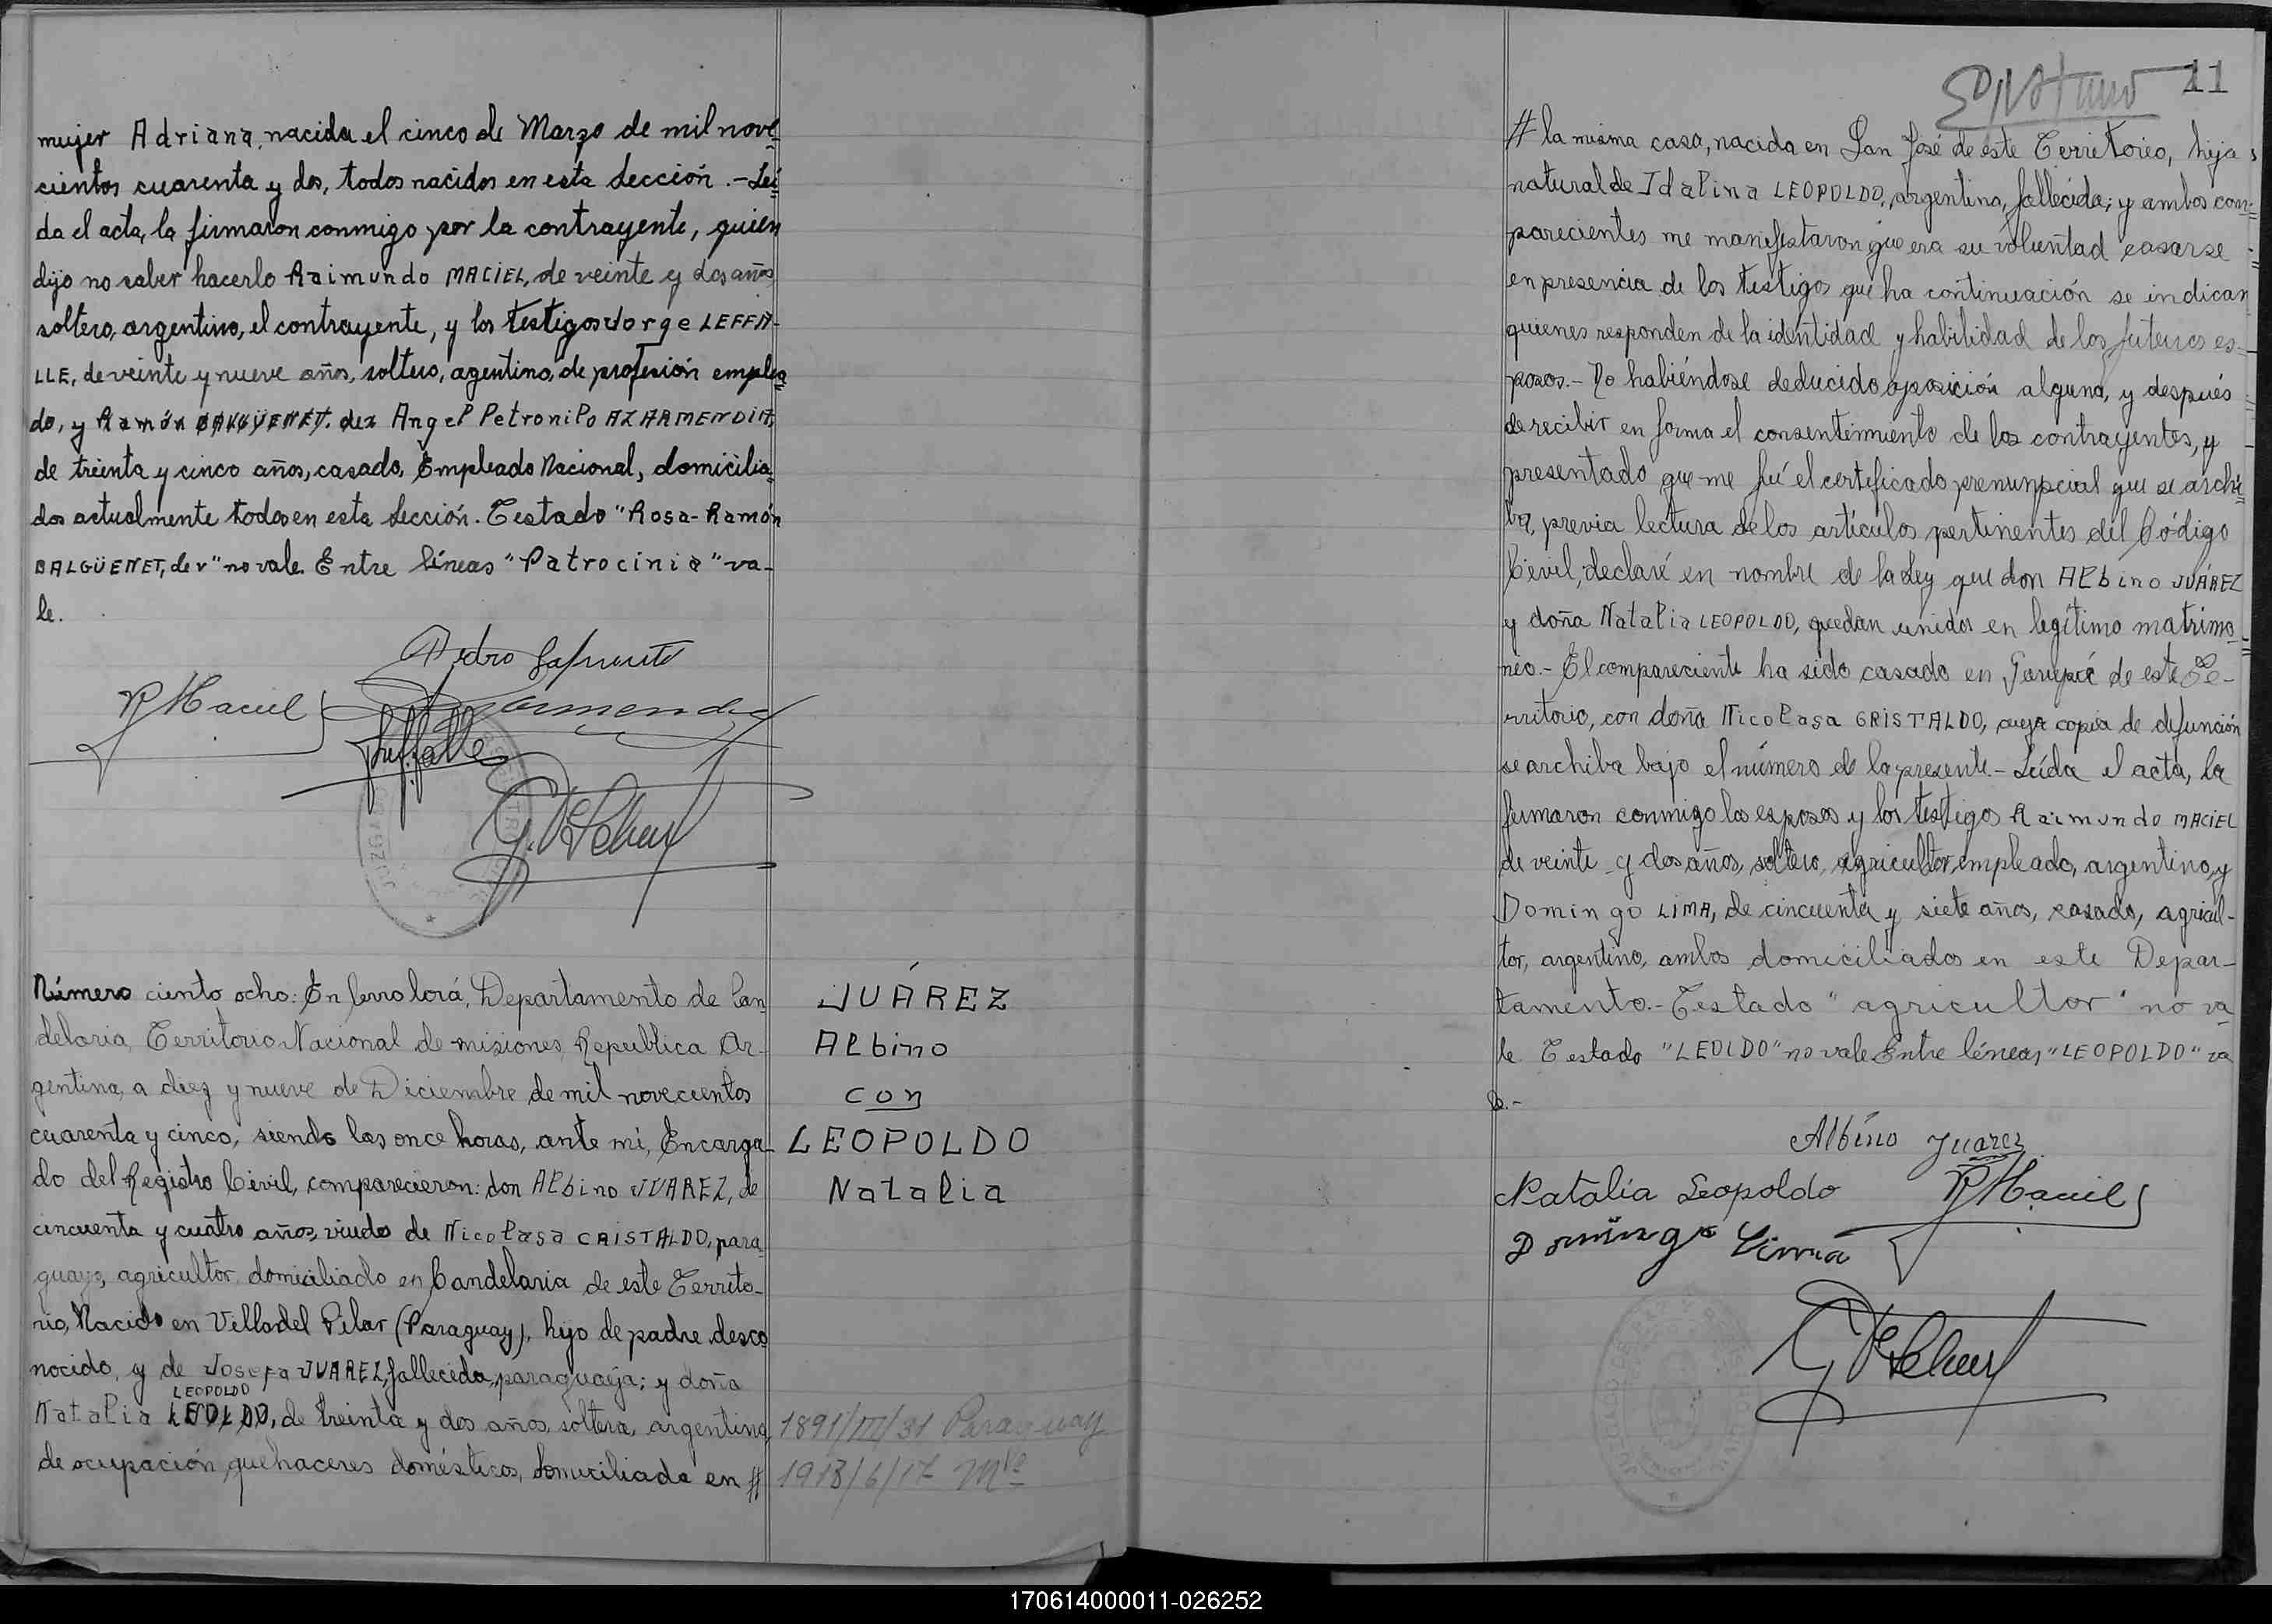 mujer Adriana, nacida el cinco de Marzo de mil nove-
cientos cuarenta y dos, todos nacidos en esta Sección.- Leí-
da el acta, la firmaron conmigo por la contrayente, quien
dijo no saber hacerlo Raimundo MACIEL, de veinte y dos años
soltero, argentino, el contrayente, y los testigos Jorge LEFFA-
LLE, de veinte y nueve años, soltero, agentino, de profesión emplea-
do, y Ramón BALGÜENET, de Angel Petronilo AZARMENDIA,
de treinta y cinco años, casado, Empleado Nacional, domicilia-
dos actualmente todos en esta Sección. Testado "Rosa-Ramón
BALGÜENET, de r" no vale. Entre líneas "Patrocinia" va-
le.
Pedro Lafuente
R Maciel
Número ciento ocho: En Cerro Corá, Departamento de Can-
delaria, Territorio Nacional de misiones, Republica Ar-
gentina, a diez y nueve de Diciembre de mil novecientos
cuarenta y cinco, siendo las once horas, ante mi, Encarga-
do del Registro Civil, comparecieron: don Albino JUAREZ, de
cincuenta y cuatro años, viudo de Nicolasa CRISTALDO, para-
guayo, agricultor, domiciliado en Candelaria de este Territo-
rio, Nacido en Villa del Pilar (Paraguay), hijo de padre desco-
nocido, y de Josefa JUAREZ, fallecida, paraguaya; y doña
LEOPOLDO
Natalia LEOLDO, de treinta y dos años, soltera, argentina,
de ocupación quehaceres domésticos, domiciliada en #
JUÁREZ
Albino
con
LEOPOLDO
Natalia
1891/III/31 Paraguay
1913/6/17 Mnes
11
# la misma casa, nacida en San José de este Territorio, hija
natural de Idalina LEOPOLDO, argentina, fallecida; y ambos com-
parecientes me manifestaron que era su voluntad casarse
en presencia de los testigos que ha continuación se indican
quienes responden de la identidad y habilidad de los futuros es-
posos.- No habiéndose deducido oposición alguna, y después
de recibir en forma el consentimiento de los contrayentes, y
presentado que me fué el certificado prenunpcial que se archi-
va, previa lectura de los artículos pertinentes del Código
Civil, declaré en nombre de la Ley que don Albino JUÁREZ
y doña Natalia LEOPOLDO, quedan unidos en legítimo matrimo-
nio.- El compareciente ha sido casado en Garupá de este Te-
rritorio, con doña Nicolasa GRISTALDO, cuya copia de defunción
se archiba bajo el número de la presente.- Leída el acta, la
firmaron conmigo los esposos y los testigos Raimundo MACIEL
de veinte y dos años, soltero, agricultor, empleado, argentino, y
Domingo LIMA, de cincuenta y siete años, casado, agricul-
tor, argentino, ambos domiciliados en este Depar-
tamento.- Testado "agricultor" no va-
le Testado "LEOLDO" no vale Entre líneas "LEOPOLDO" va
le.-
Albino Juarez
Natalia Leopoldo R Maciel
Domingo Lima
170614000011-026252